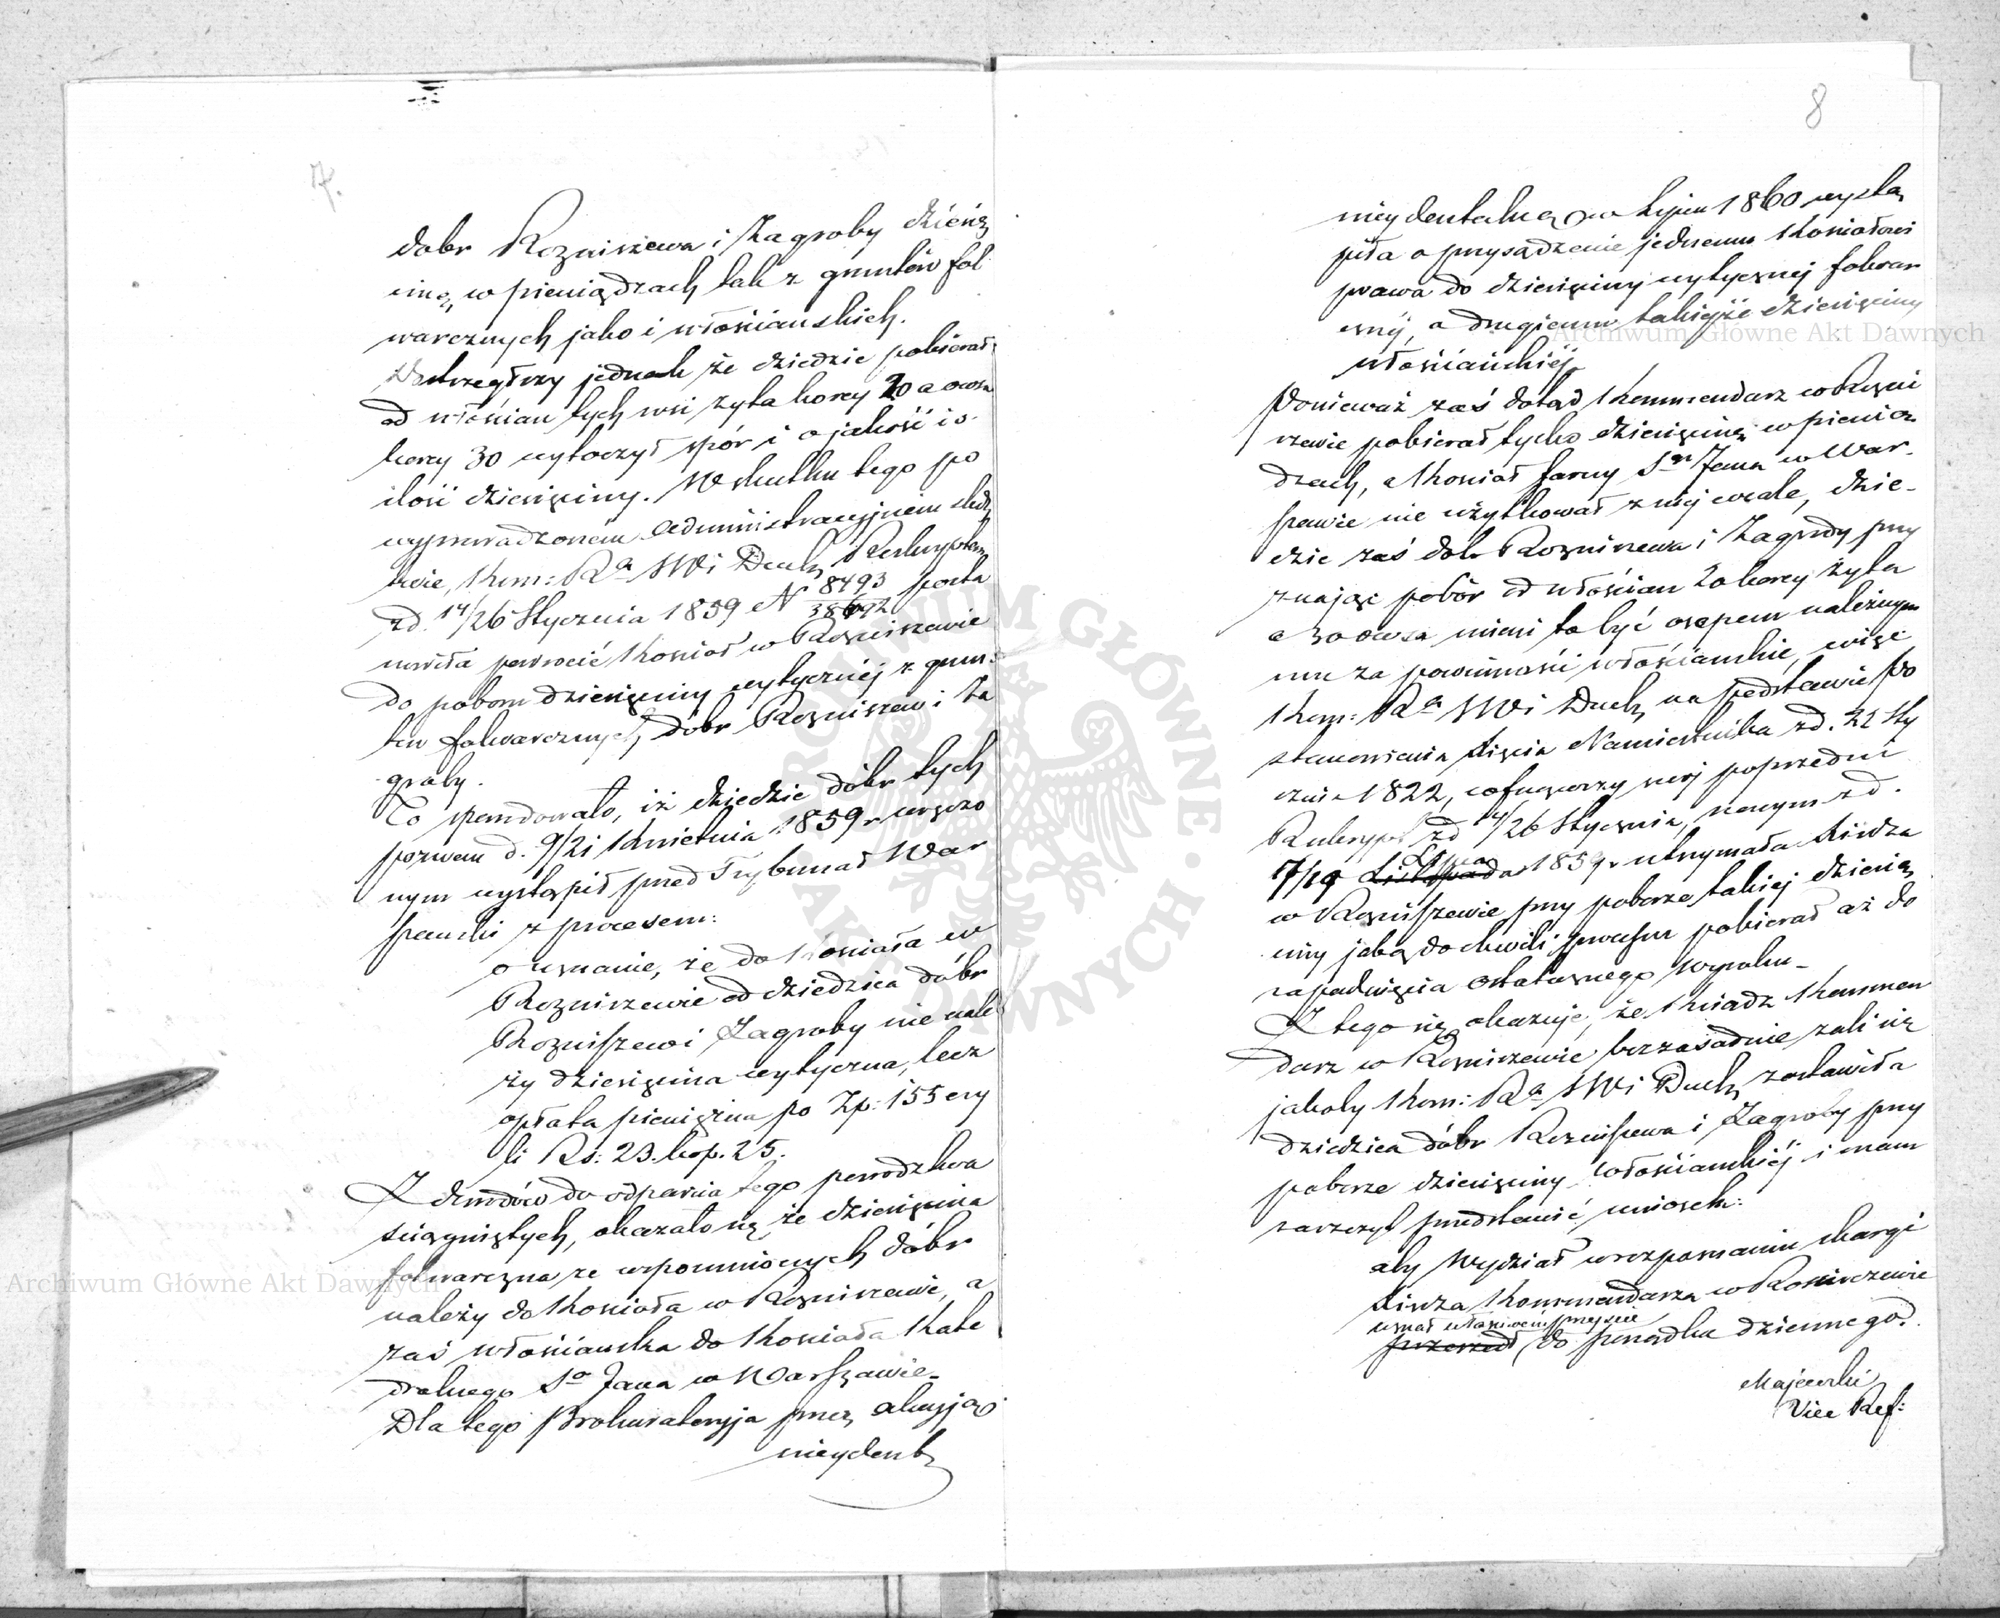 7.
dobr Rozniszewa i Zagroby dziesię
cinę, w pieniądzach tak z gruntów fol
warcznych jako i włościańskich.
Dostrzegłszy jednak że dziedzic pobierał
od włościan tych wsi żyta korcy 20 a owsa
korcy 30 wytoczył spór i o jakość i o
ilość dziesięciny. W skutku tego po
wyprowadzonem administracyjnem śledz
twie, Kom: Rz. SW i Duch, Reskryptem
z d. 14/26 Stycznia 1859 N 8493/38692 posta
nowiła powrócić Kościoł w Rozniszewie
do poboru dziesięciny wytycznéj z grun
tów folwarcznych, dóbr Rozniszew i Za
groby.
To spowodowało, iż dziedzic dóbr tych
pozwem d. 9/21 Kwietnia 1859 r. wręczo
nym wystąpił przed Trybunał War
szawski z procesem:
o uznanie, że do Kościoła w
Rozniszewie od dziedzica dóbr
Rozniszew i Zagroby nie nale
ży dziesięcina wytyczna, lecz
opłata pieniężna po Zp: 155 czy
li Rs: 23. kop. 25.
Z dowodów do odparcia tego powództwa
ściągniętych, okazało się że dziesięcina
folwarczna ze wspomnionych dóbr
należy do Kościoła w Rozniszewie, a
zaś włościańska do Kościoła Kate
dralnego Sgo Jana w Warszawie.
Dla tego Prokuratorya przez akcyją
incydent
8
incydentalną w Lipcu 1860 wystą
piła o przysądzenie jednemu Kościołowi
prawa do dziesięciny wytycznej folwar
cznéj, a drugiemu takiejże dziesięciny
włościańskiéj.
Ponieważ zaś dotąd Kommendarz w Rozni
szewie pobierał tylko dziesięcinę w pienią
dzach, a Kościoł farny Sgo Jana w War-
szawie nie użytkował z niej wcale, dzie-
dzic zaś dobr Rozniszewa i Zagroby przy
znając pobór od włościan 20 korcy żyta
a 30 owsa mieni to być osepem należnym
mu za powinności włościańskie, więc
Kom: Rz. SW i Duch, na podstawie po
stanowienia Księcia Namiestnika z d. 22 Sty
cznia 1822, cofnąwszy swój poprzedni
Reskrypt z d 14/26 Stycznia, nowym z d.
7/19 Listopada Lipca 1859 r utrzymała Księdza
w Rozniszewie przy poborze takiej dziesię
ciny jaką do chwili processu pobierał aż do
zapadnięcia ostatecznego wyroku.
Z tego się okazuje, że Ksiądz Kommen
darz w Rozniszewie bezzasadnie żali się
jakoby Kom: Rz. SW i Duch, zostawiła
dziedzica dóbr Rozniszewa i Zagroby przy
poborze dziesięciny włościańskiéj i mam
zaszczyt przedstawić wniosek:
aby Wydział w rozpoznaniu skargi
Księdza Kommendarza w Rozniszewie
uznał właściwem przejście
przeszedł do porządku dziennego.
Majewski
Vice Ref:
Archiwum Główne Akt Dawnych
Archiwum Główne Akt Dawnych
ARCHIWUM GŁÓWNE AKT DAWNYCH